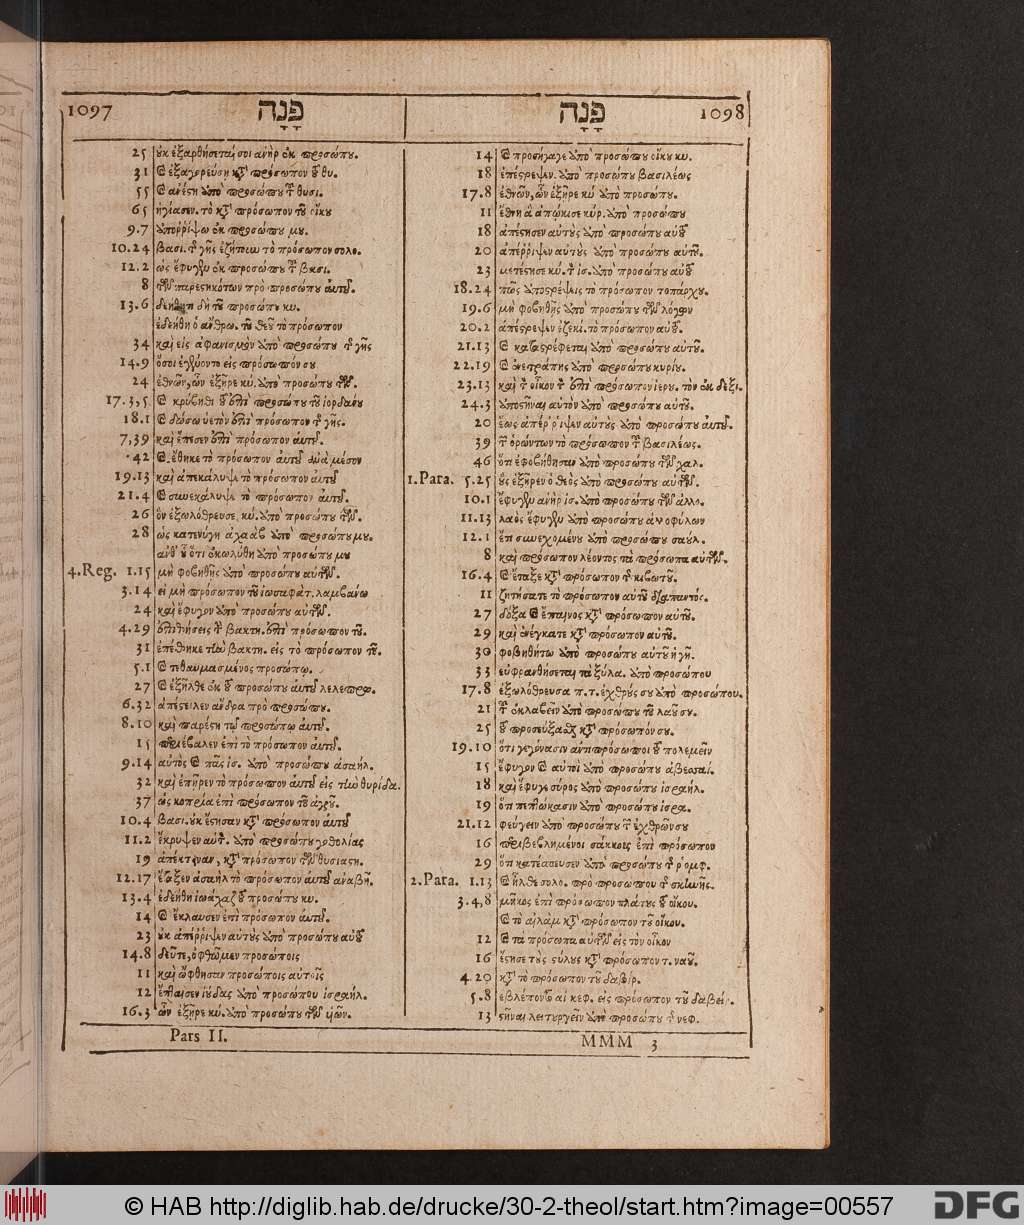 1097 פָּנָה פָּנָה 1098
25 ἐκ προσώπυ.
31 πρόσωπον
55 ὑπὸ προσώπυ
65 ἡγίασεν. τὸ κτ̀ πρόσωπον τῦ οἴκυ
9.7 ἀπορρίψω ἐκ προσώπυ μυ.
10.24 βασι. τ̃ γῆς ἐζήτουν τὸ πρόσωπον σολο.
12.2 ὡς ἔφυγεν ἐκ προσώπυ τ̃ βασι.
8 τῶν παρεςηκότων πρὸ προσώπυ αὐτῦ.
13.6 δεήθητι δὴ τῦ προσώπυ κυ.
ἐδεήθη ὁ ἄνθρω. τῦ θεῦ τὸ πρόσωπον
34 καὶ εἰς ἀφανισμὸν ἀπὸ προσώπυ τ̃ γῆς
14.9 εἰς πρόσωπόν συ
24 ἐθνῶν, ὧν ἐξῆρε κύ. ἀπὸ προσώπυ τῶν.
17.3,5. προσώπυ τῦ ἰορδάνυ
18.1 καὶ δώσω ὑετὸν ἐπὶ πρόσωπον τ̃ γῆς.
7,39 καὶ ἔπεσεν ἐπὶ πρόσωπον αὐτῦ.
42 καὶ ἔθηκε τὸ πρόσωπον αὐτῦ ἀνὰ μέσον
19.13 καὶ ἀπεκάλυψε τὸ πρόσωπον αὐτῦ
21.4 καὶ συνεκάλυψε τὸ πρόσωπον αὐτῦ.
26 ὃν ἐξωλόθρευσε. κύ. ἀπὸ προσώπυ τῶν.
28 ὡς κατενύγη ἀχαὰβ ἀπὸ προσώπυ μυ.
ἀπὸ προσώπυ μυ
4.Reg. 1.15 μὴ φοβηθῇς ἀπὸ προσώπυ αὐτῶν.
3.14 εἰ μὴ πρόσωπον τῦ ἰωσαφὰτ. λαμβάνω
24 καὶ ἔφυγον ἀπὸ προσώπυ αὐτῶν.
4.29 ἐπιθήσεις τ̃ βακτη. ἐπὶ πρόσωπον τῦ.
31 ἐπέθηκε τὴν βακτη. εἰς τὸ πρόσωπον τῦ.
5.1 καὶ τεθαυμασμένος προσώπῳ.
27 καὶ ἐξῆλθε ἐκ τῦ προσώπυ αὐτῦ λελεπρω.
6.32 ἀπέςειλεν ἄνδρα πρὸ προσώπυ.
8.10 καὶ παρέςη τῷ προσώπῳ αὐτῦ.
15 περιέβαλεν ἐπὶ τὸ πρόσωπον αὐτῦ.
9.14 αὐτὸς καὶ πᾶς ἰσ. ἀπὸ προσώπυ ἀζαήλ.
32 καὶ ἐπῆρεν τὸ πρόσωπον αὐτῦ εἰς τὴν θυρίδα.
37 ὡς κοπρία ἐπὶ πρόσωπον τῦ ἀγρῦ.
10.4 βασι. ὐκ ἔςησαν κτ̀ πρόσωπον αὐτῦ
11.2 ἔκρυψεν αὐτ. ἀπὸ προσώπυ γοθολίας
19 ἀπέκτειναν, κτ̀ πρόσωπον τῶν θυσιαςη.
12.17 ἔταξεν ἀζαὴλ τὸ πρόσωπον αὐτῦ ἀναβῆ.
13.4 ἐδεήθη ἰωάχαζ τῦ προσώπυ κυ.
14 καὶ ἔκλαυσεν ἐπὶ πρόσωπον αὐτῦ.
23 ὐκ ἀπέρριψεν αὐτὺς ἀπὸ προσώπυ αὐτῦ
14.8 δεῦτε, ὀφθῶμεν προσώποις
11 καὶ ὤφθησαν προσώποις αὐτοῖς
12 ἔπταισεν ἰύδας ἀπὸ προσώπου ἰσραήλ.
16.3 ὧν ἐξῆρε κύ. ἀπὸ προσώπυ τῶν ὑῶν.
Pars II.
14 καὶ προσήγαγε ἀπὸ προσώπυ οἴκυ κυ.
18 ἐπέςρεψεν. ἀπὸ προσώπυ βασιλέως
17.8 ἐθνῶν, ὧν ἐξῆρε κύ ἀπὸ προσώπυ.
11 ἔθνη ἃ ἀπῴκισε κύρ. ἀπὸ προσώπυ
18 ἀπέςησεν αὐτὺς ἀπὸ προσώπυ αὐτῦ
20 ἀπέρριψεν αὐτὺς ἀπὸ προσώπυ αὐτῦ.
23 μετέςησε κύ. τ̀ ἰσ. ἀπὸ προσώπυ αὐτῦ
18.24 πῶς ἀποςρέψεις τὸ πρόσωπον τοπάρχυ.
19.6 μὴ φοβηθῇς ἀπὸ προσώπυ τῶν λόγων
20.2 ἀπέςρεψεν ἐζεκί. τὸ πρόσωπον αὐτῦ.
21.13 καὶ καταςρέφεται ἀπὸ προσώπυ αὐτῦ.
22.19 καὶ ἐνετράπης ἀπὸ προσώπυ κυρίυ.
23.13 καὶ τ̀ οἶκον τ̀ ἐπὶ πρόσωπον ἱερυ. τὸν ἐκ δεξι.
24.3 ἀποςῆναι αὐτὸν ἀπὸ προσώπυ αὐτῦ.
20 ἕως ἀπέρριψεν αὐτὺς ἀπὸ προσώπυ αὐτῦ.
39 τ̃ ὁρώντων τὸ πρόσωπον τῦ βασιλέως.
46 ὅτι ἐφοβήθησαν ἀπὸ προσώπυ τῶν χαλ.
1.Para. 5.25 ὓς ἐξῆρεν ὁ θεὸς ἀπὸ προσώπυ αὐτῶν.
10.1 ἔφυγεν ἀνὴρ ἰσ. ἀπὸ προσώπυ τῶν ἀλλο.
11.13 λαὸς ἔφυγεν ἀπὸ προσώπυ ἀλλοφύλων
12.1 ἔτι συνεχομένυ ἀπὸ προσώπυ σαύλ.
8 καὶ πρόσωπον λέοντος τὰ πρόσωπα αὐτῶν.
16.4 καὶ ἔταξε κτ̀ πρόσωπον τ̃ κιβωτῦ.
11 ζητήσατε τὸ πρόσωπον αὐτῦ διαπαντός.
27 δόξα καὶ ἔπαινος κτ̀ πρόσωπον αὐτῦ.
29 καὶ ἐνέγκατε κτ̀ πρόσωπον αὐτῦ.
30 φοβηθήτω ἀπὸ προσώπυ αὐτῦ ἡ γῆ.
33 εὐφρανθήσεται τὰ ξύλα. ἀπὸ προσώπου
17.8 ἐξωλόθρευσα π.τ. ἐχθρύς συ ἀπὸ προσώπου.
21 τῦ ἐκβαλεῖν ἀπὸ προσώπυ τῦ λαῦ συ.
25 τῦ προσεύξασθαι κτ̀ πρόσωπόν συ.
19.10 ὅτι γεγόνασιν ἀντιπρόσωποι τῦ πολεμεῖν
15 ἔφυγον καὶ αὐτοὶ ἀπὸ προσώπυ ἀβεσσαί.
18 καὶ ἔφυγε σύρος ἀπὸ προσώπυ ἰσραήλ.
19 ὅτι πεπτώκασιν ἀπὸ προσώπυ ἰσρα.
21.12 φεύγειν ἀπὸ προσώπυ τ̃ ἐχθρῶν συ
16 περιβεβλημένοι σάκκοις ἐπὶ πρόσωπον
29 ὅτι κατέσπευσεν ἀπὸ προσώπυ τ̃ ῥομφ.
2.Para. 1.13 καὶ ἦλθε σολο. πρὸ προσώπου τ̃ σκηνῆς.
3.4,8 μῆκος ἐπὶ πρόσωπον πλάτυς τῦ οἴκου.
καὶ τὸ αἰλὰμ κτ̀ πρόσωπον τῦ οἴκου.
12 καὶ τὰ πρόσωπα αὐτῶν εἰς τὸν οἶκον
16 ἔςησε τὺς ςύλυς κτ̀ πρόσωπον τ. ναῦ.
4.20 κτ̀ τὸ πρόσωπον τῦ δαβίρ.
5.8 ἐβλέποντο αἱ κεφ. εἰς πρόσωπον τῦ δαβείρ.
13 ςῆναι λειτυργεῖν ἀπὸ προσώπυ τ̃ νεφ.
MMM 3
© HAB http://diglib.hab.de/drucke/30-2-theol/start.htm?image=00557
DFG